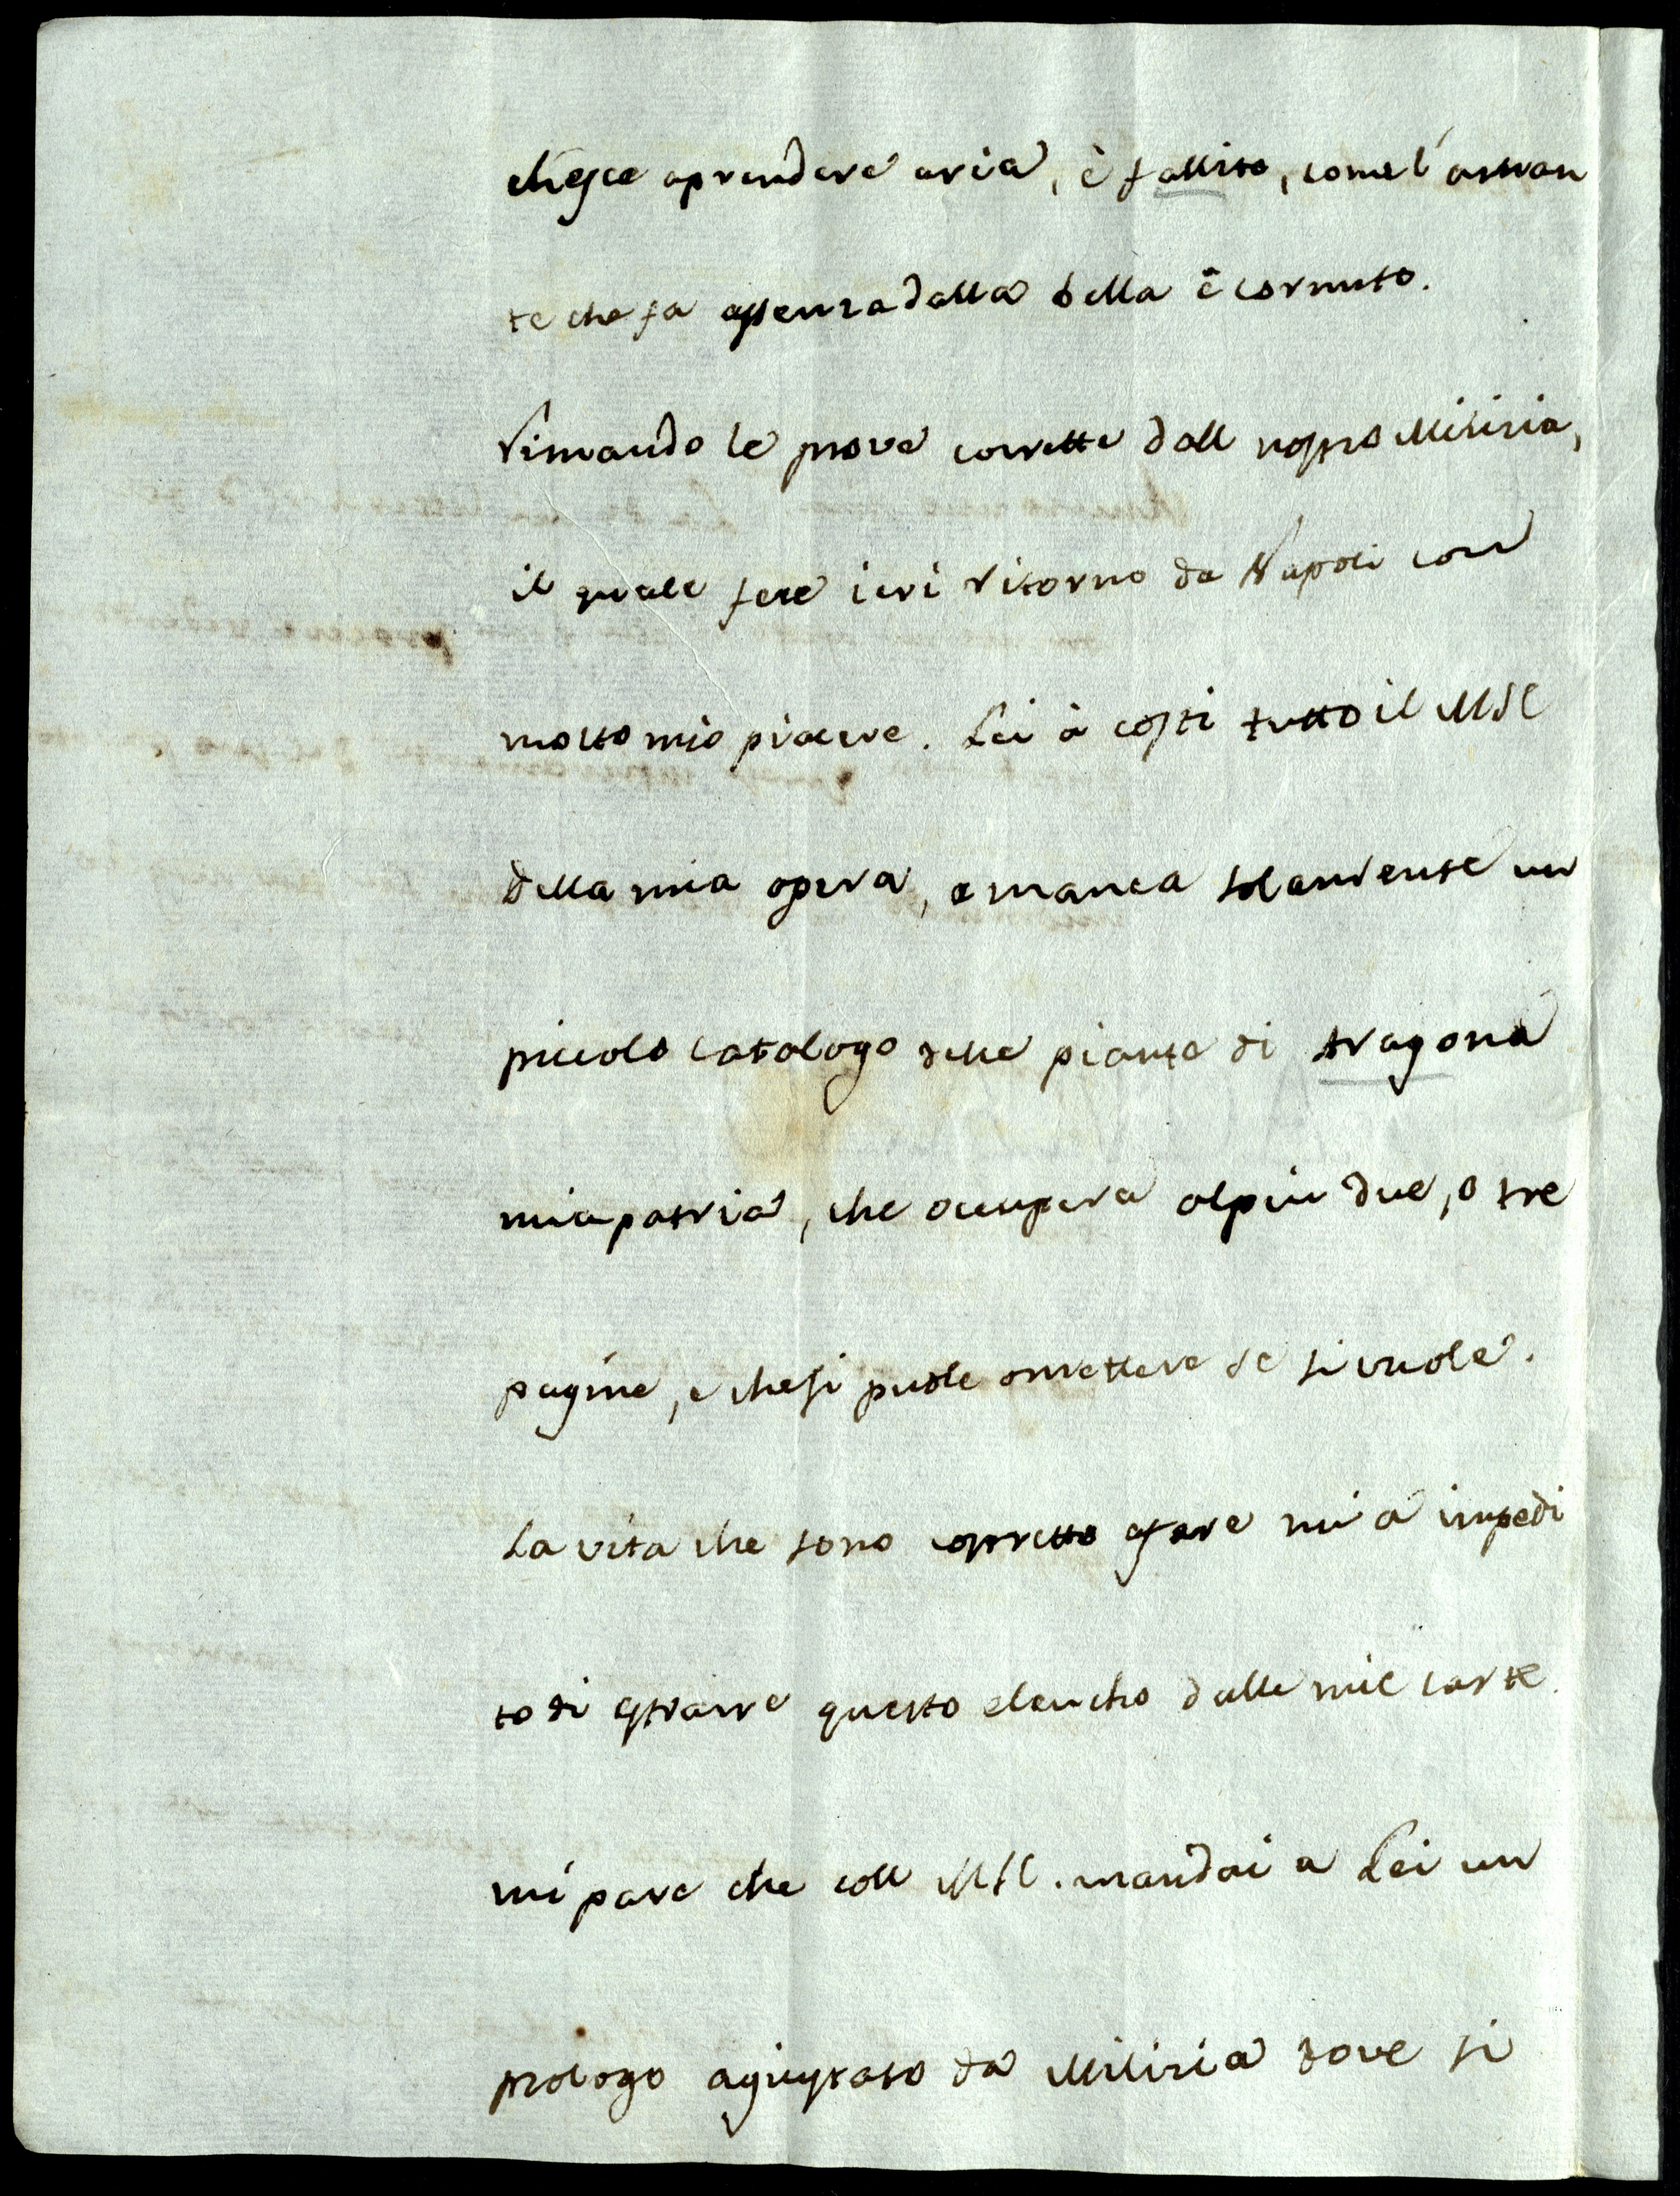 ch'esce aprendere aria, è fallito, come l'aman
te che fa assenza dalla bella è cornuto.
Rimando le prove corrette dall nostro Milizia,
il quale fece ieri ritorno da Napoli con
molto mio piacere. Lei à costi tutto il MSC
della mia opera, e manca solamente un
piccolo catalogo delle piante di Aragona
mia patria, che occupera alpiu due, o tre
pagine, e chesi puole omettere se si vuole.
La vita che sono costretto afare mi à impedi
to di estrarre questo elencho dalle mie carte.
mi pare che coll MSC. mandai a Lei un
prologo agiustato da Milizia dove si